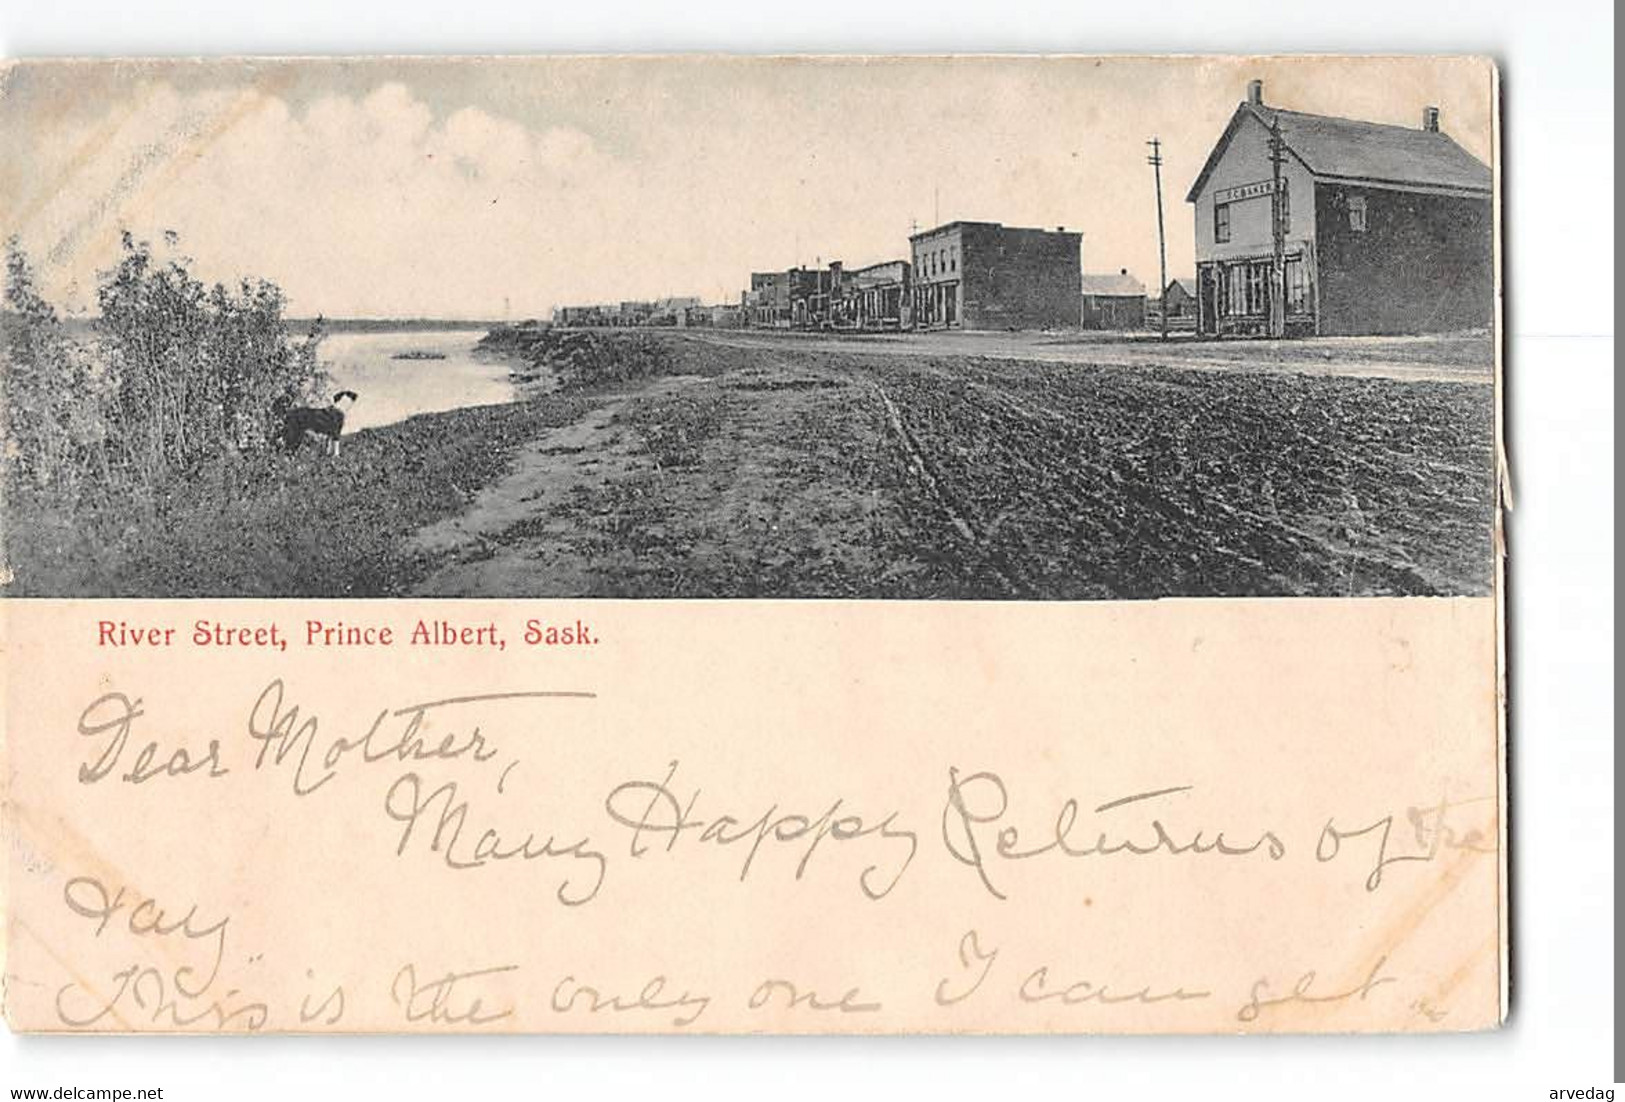 C. BAKER
River Street, Prince Albert, Sask.
Dear Mother,
Many Happy Returns of the
Day.
This is the only one I can get
www.delcampe.net
arvedag